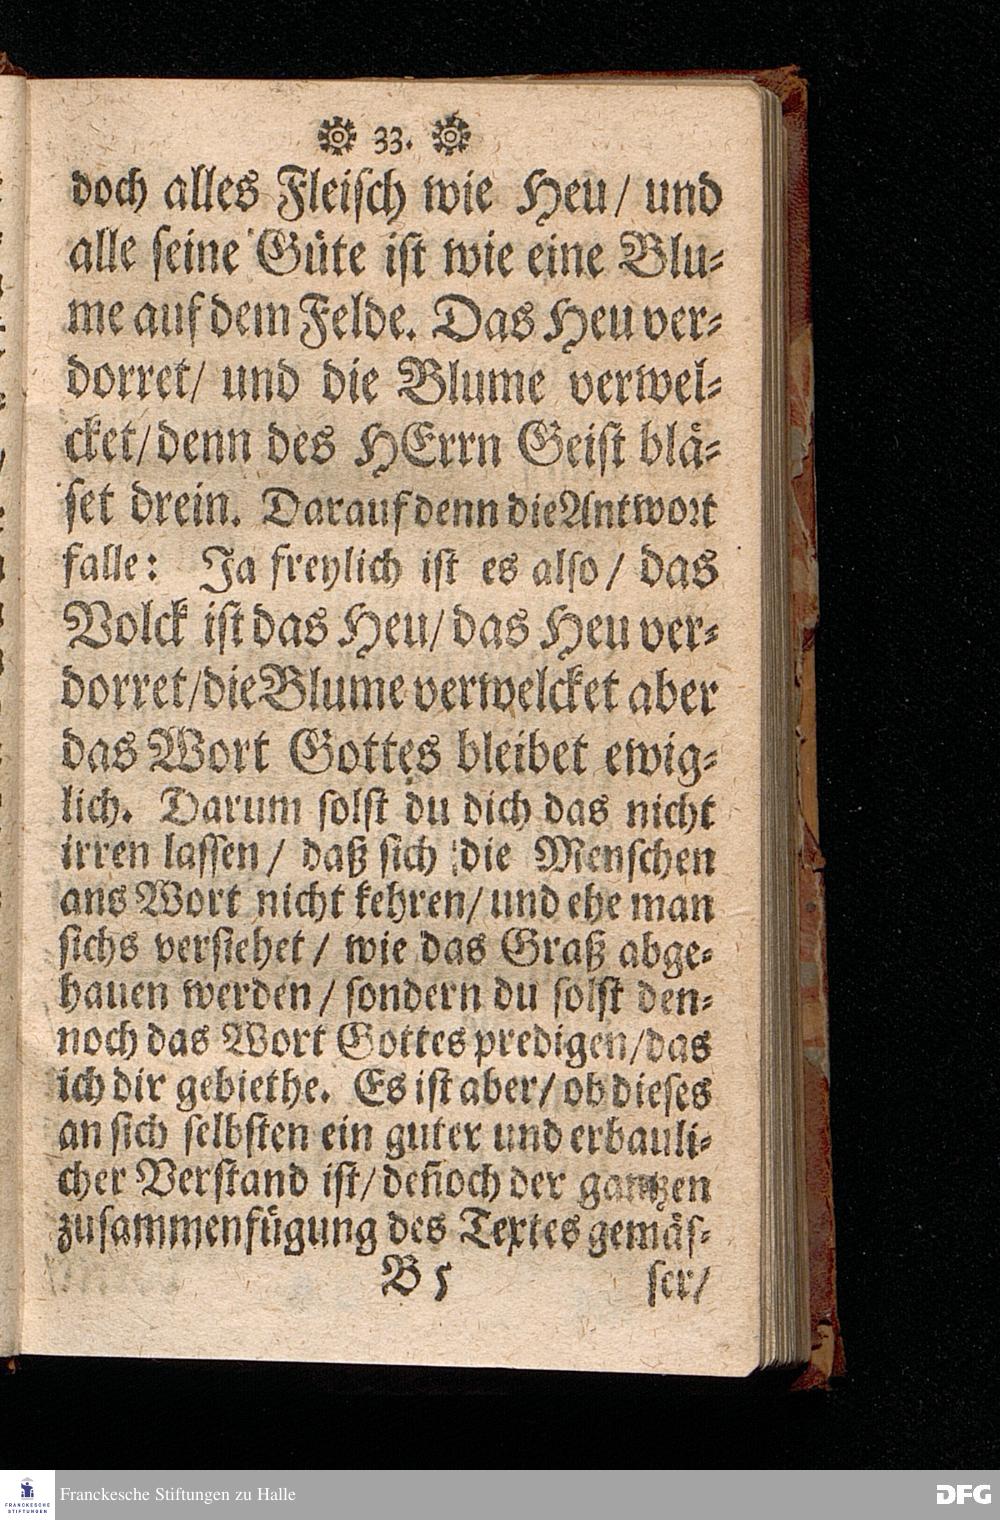 33.
doch alles Fleisch wie Heu / und
alle seine Güte ist wie eine Blu-
me auf dem Felde. Das Heu ver-
dorret / und die Blume verwel-
cket / denn des HErrn Geist blä-
set drein. Darauf denn die Antwort
falle: Ja freylich ist es also / das
Volck ist das Heu / das Heu ver-
dorret / die Blume verwelcket aber
das Wort Gottes bleibet ewig-
lich. Darum solst du dich das nicht
irren lassen / daß sich die Menschen
ans Wort nicht kehren / und ehe man
sichs versiehet / wie das Graß abge-
hauen werden / sondern du solst den-
noch das Wort Gottes predigen / das
ich dir gebiethe. Es ist aber / ob dieses
an sich selbsten ein guter und erbauli-
cher Verstand ist / deñoch der gantzen
zusammenfügung des Textes gemäs-
B 5 ser /
FRANCKESCHE
STIFTUNGEN
Franckesche Stiftungen zu Halle
DFG